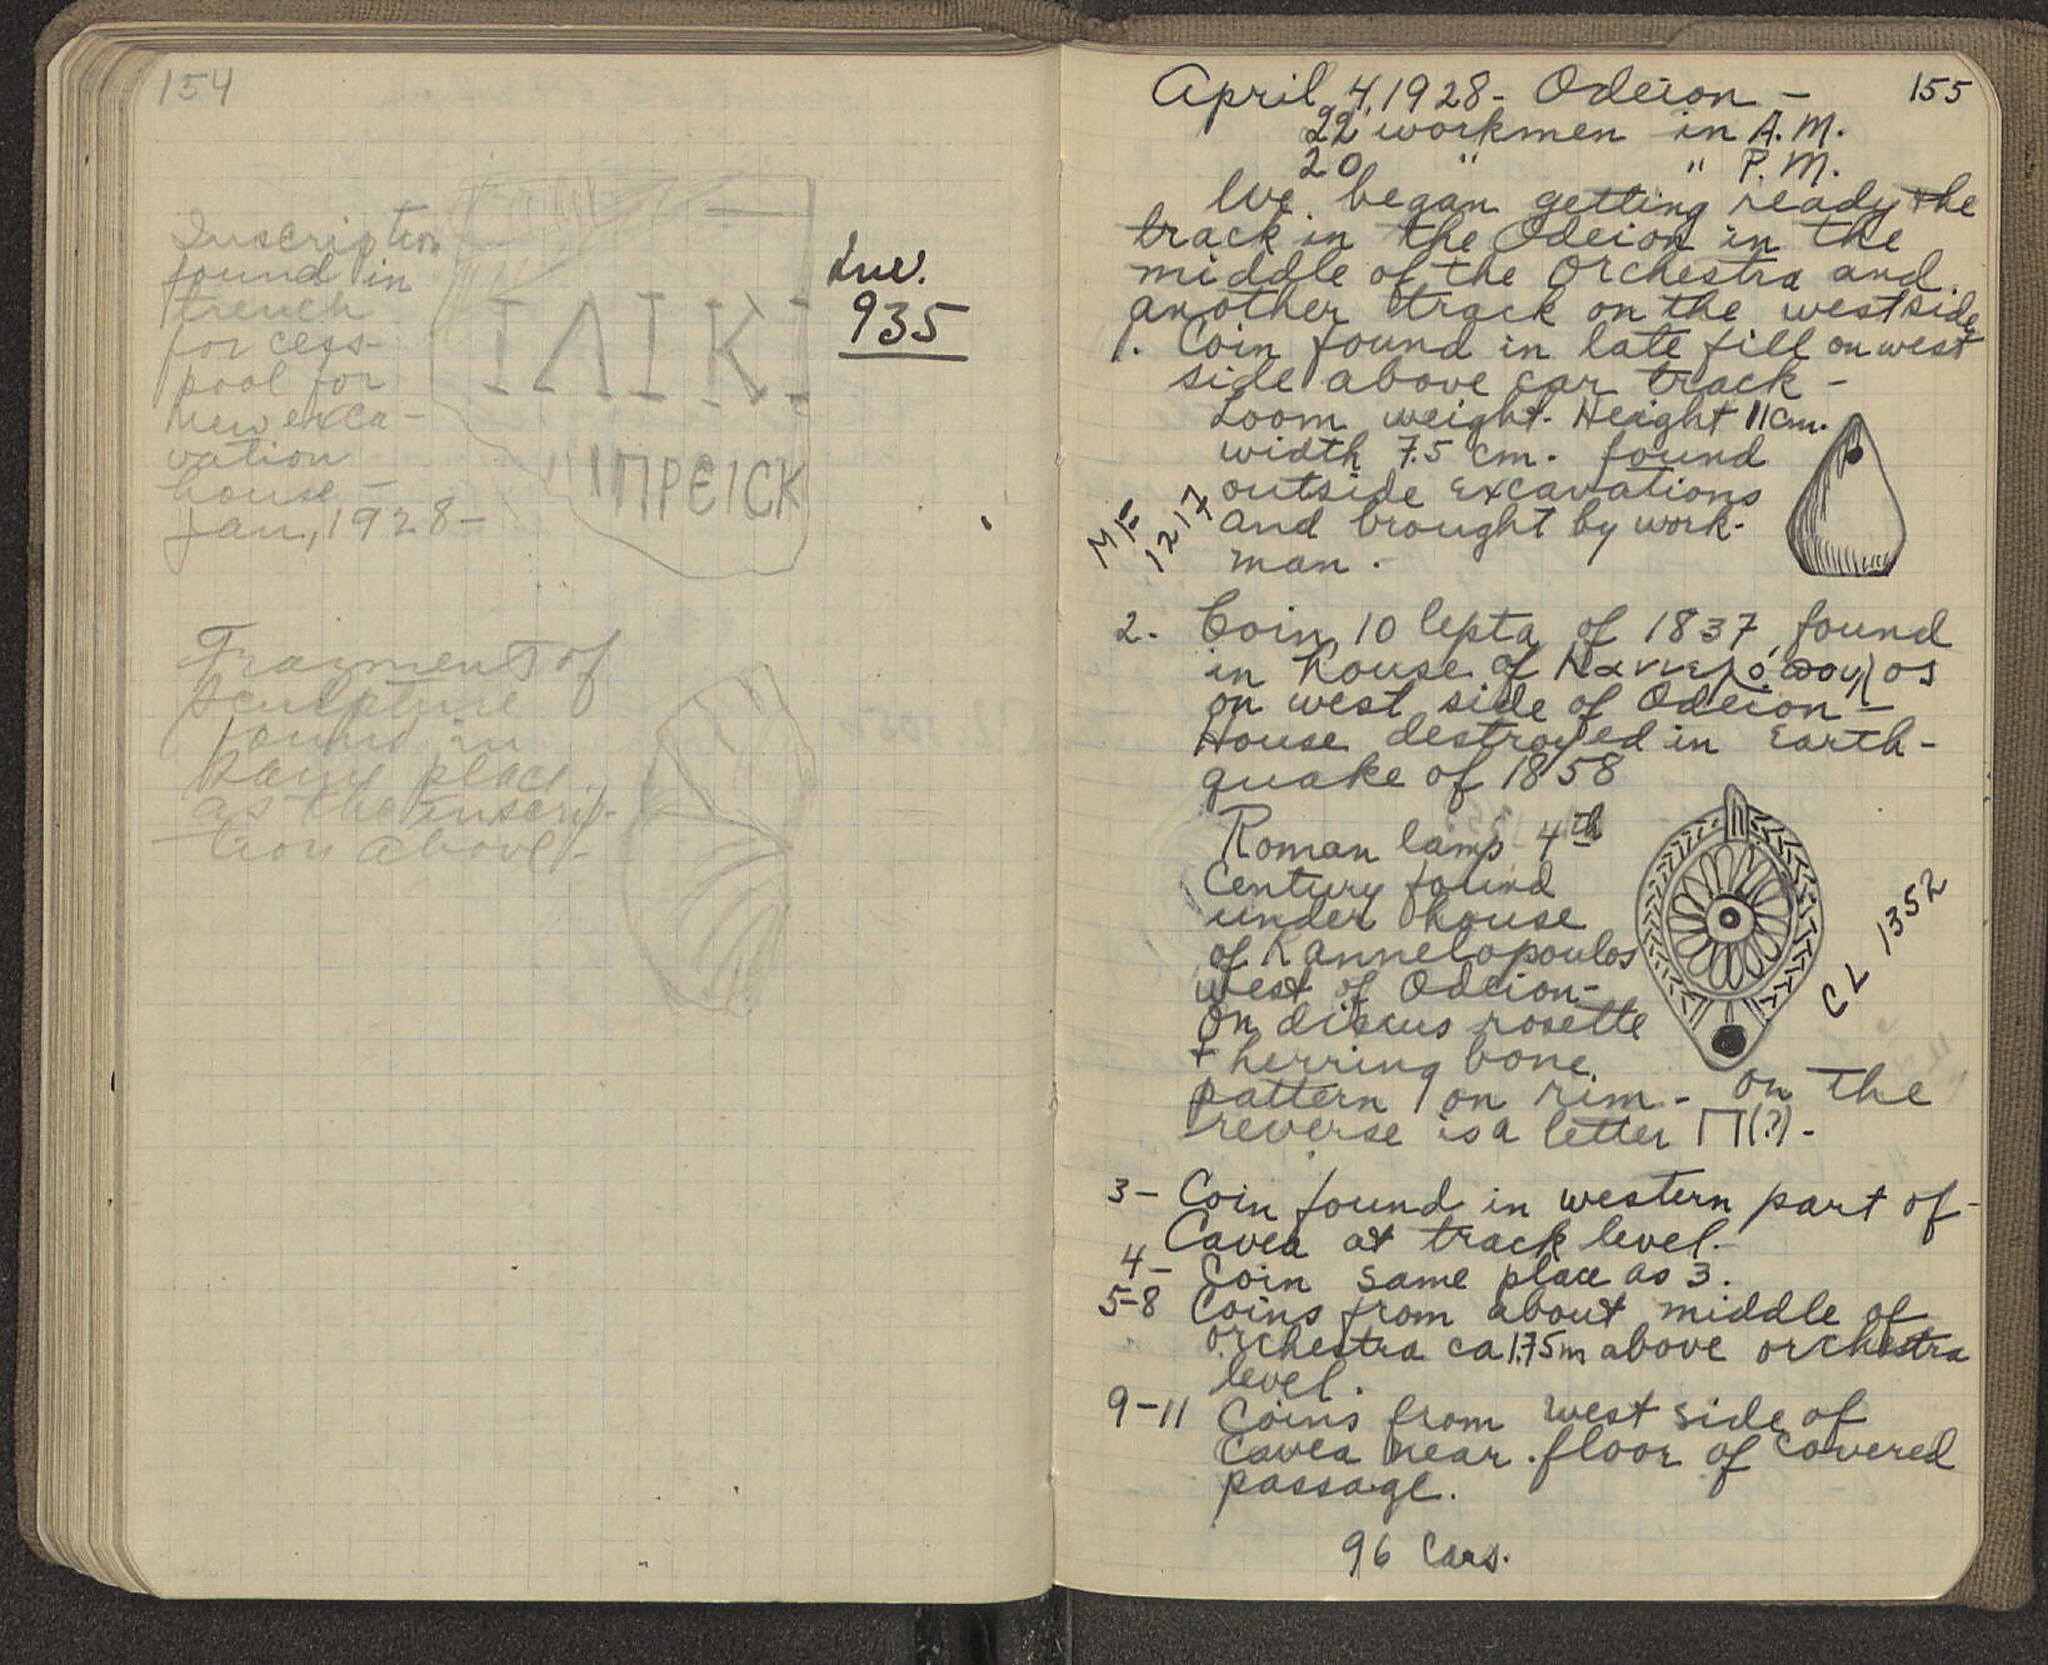 154
Inscription
found in
trench
for cess-
pool for
new exca-
vation
house -
Jan, 1928 -
ΙΛΙΚ
ΠΡΕΙCΚ
Inv.
935
Fragment of
sculpture
found in
same place
as the inscrip-
tion above -
155
April 4, 1928 - Odeion -
22 workmen in A.M.
20 " " P.M.
We began getting ready the
track in the Odeion in the
middle of the Orchestra and
another track on the west side
1. Coin found in late fill on west
side above car track -
Loom weight. Height 11 cm.
width 7.5 cm. found
outside excavations
and brought by work-
man.
MF
1217
2. Coin, 10 lepta of 1837, found
in house of
on west side of Odeion -
House destroyed in Earth-
quake of 1858
Roman lamp 4th
Century found
under house
of Kannelopoulos
west of Odeion -
On discus rosette
+ herring bone
pattern on rim - on the
reverse is a letter Π(?) -
CL 1352
3 - Coin found in western part of
Cavea at track level.
4 - Coin same place as 3.
5-8 Coins from about middle of
orchestra ca 1.75m above orchestra
level.
9-11 Coins from west side of
Cavea near floor of covered
passage.
96 Cars.